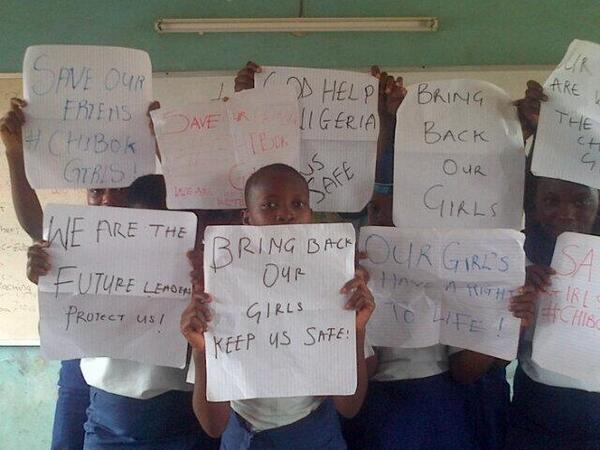 SAVE OUR
FRIENS
#CHIBOK
GIRLS!
SAVE
WE ARE
GOD HELP
NIGERIA
US
SAFE
BRING
BACK
OUR
GIRLS
OUR
ARE
THE
WE ARE THE
FUTURE LEADERS
PROTECT US!
BRING BACK
OUR
GIRLS
KEEP US SAFE!
OUR GIRL'S
HAVE A RIGHT
TO LIFE!
#CHIBO